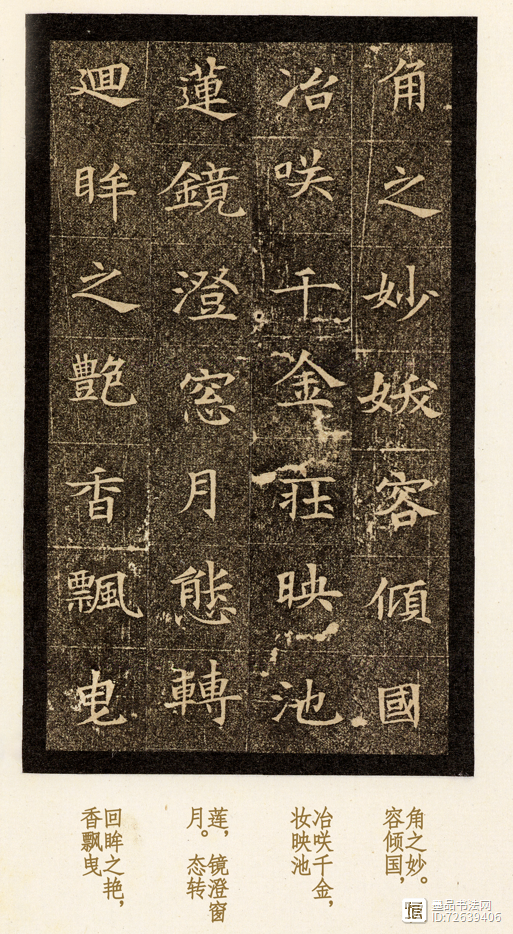 角之妙娥容傾國
冶咲千金莊映池
蓮鏡澄窓月態轉
迴眸之艷香飄曳
角之妙。
容倾国，
冶咲千金，
妆映池
莲，镜澄窗
月。态转
回眸之艳，
香飘曳
墨品书法网
ID:72639406